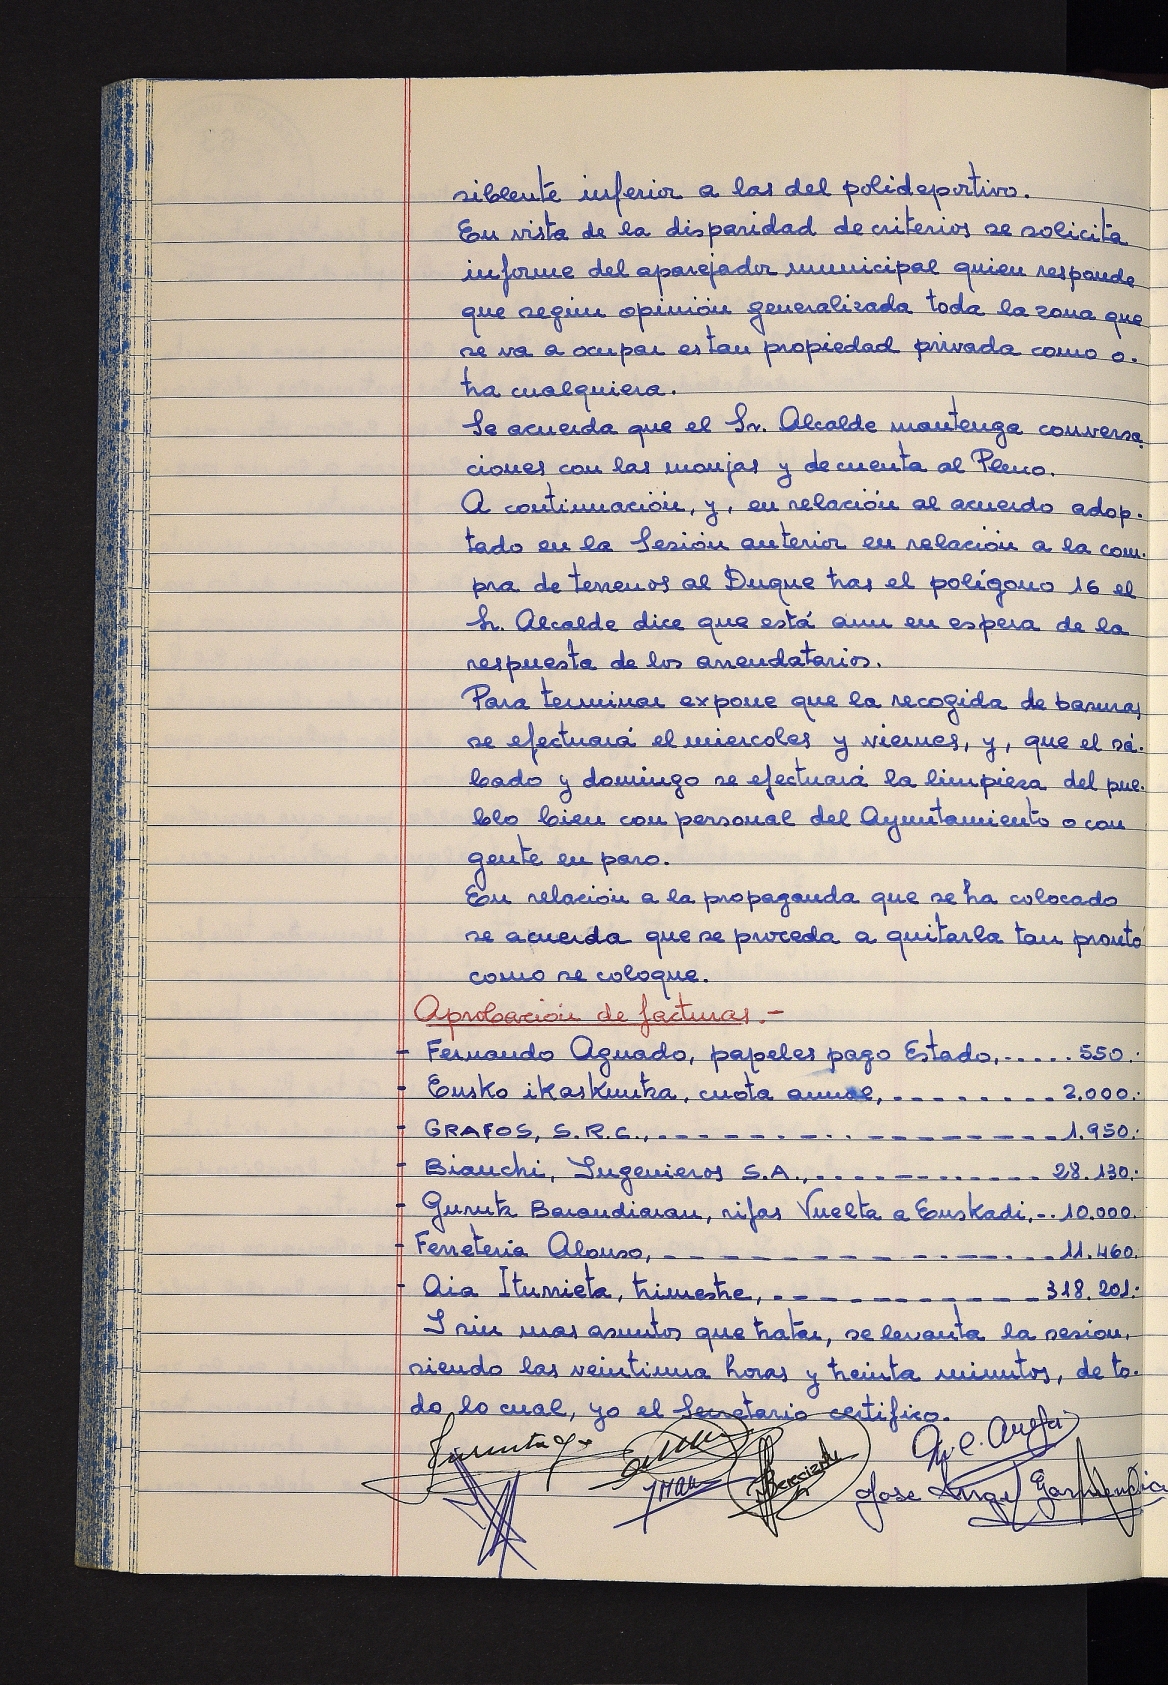 siblente inferior a las del polideportivo.
En vista de la disparidad de criterios se solicita
informe del aparejador municipal quien responde
que según opinión generalizada toda la zona que
se va a ocupar es tan propiedad privada como o-
tra cualquiera.
Se acuerda que el Sr. Alcalde mantenga conversa
ciones con las monjas y de cuenta al Pleno.
A continuación, y, en relación al acuerdo adop-
tado en la Sesión anterior en relación a la com-
pra de terrenos al Duque tras el polígono 16 el
Sr. Alcalde dice que está aun en espera de la
respuesta de los arrendatarios.
Para terminar expone que la recogida de basuras
se efectuará el miercoles y viernes, y, que el sá-
bado y domingo se efectuará la limpieza del pue-
blo bien con personal del Ayuntamiento o con
gente en paro.
En relación a la propaganda que se ha colocado
se acuerda que se proceda a quitarla tan pronto
como se coloque.
Aprobación de facturas.-
- Fernando Aguado, papeles pago Estado,..... 550.-
- Eusko ikaskuntza, cuota anual,......... 2.000.-
- GRAFOS, S.R.C.,.......... 1.950.-
- Bianchi, Ingenieros S.A.,.......... 28.130.-
- Gurutz Barandiaran, rifas Vuelta a Euskadi,.. 10.000.
- Ferreteria Alonso,.......... 11.460.
- Aia Iturrieta, trimestre,.......... 318.201.-
Y sin mas asuntos que tratar, se levanta la sesion,
siendo las veintiuna horas y treinta minutos, de to-
do lo cual, yo el Secretario certifico.
Jose Angel Garmendia